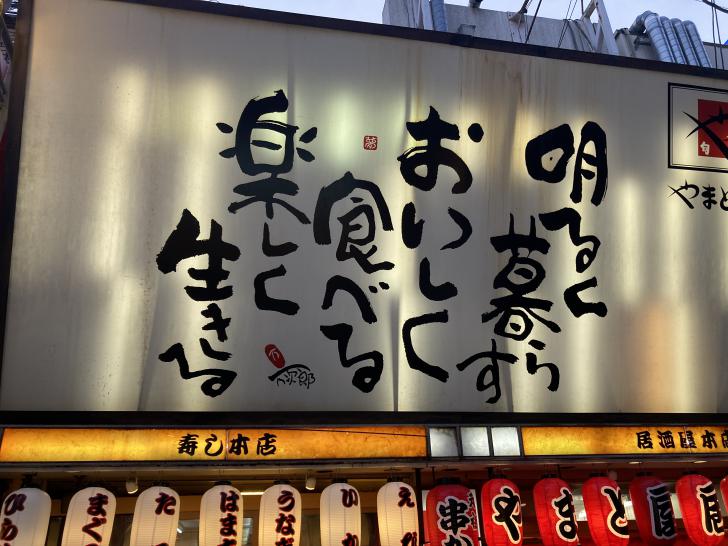 明るく
暮らす
おいしく
食べる
楽しく
生きる
夢
次郎
旬
やまと
寿し本店
居酒屋本
ひら
まぐ
た
はま
うな
いか
え
串か
や
ま
と